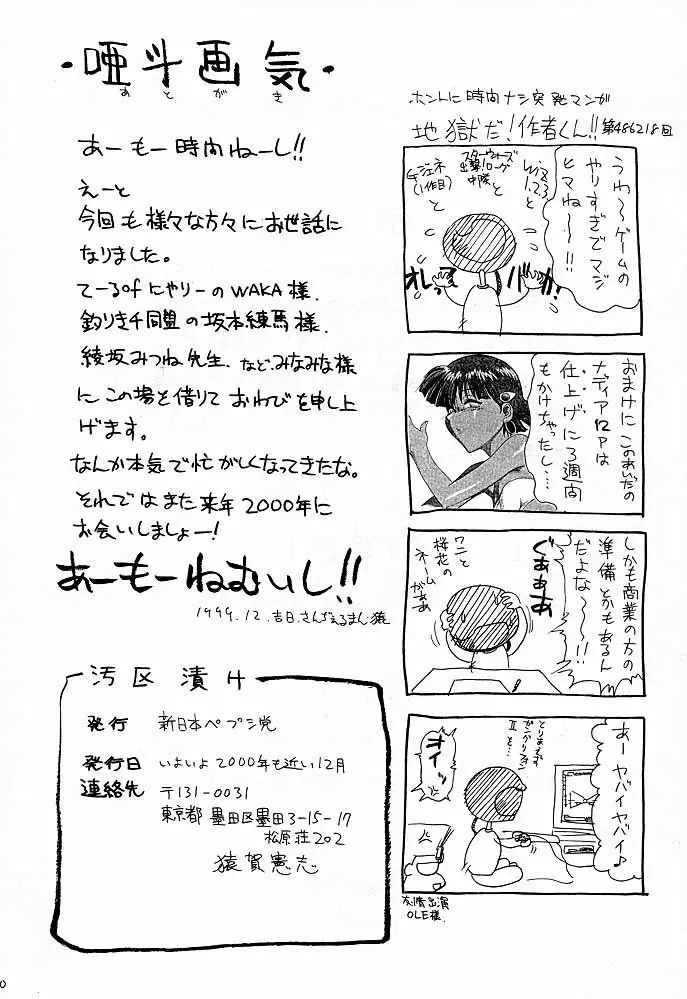 ・唖斗画気・
あとがき
あーもー時間ねーし!!
えーと
今回も様々な方々にお世話に
なりました。
てーるofにゃりーのWAKA様.
釣りキチ同盟の坂本練馬様.
綾坂みつね先生. などみなみな様
にこの場を借りておわびを申し上
げます。
なんか本気で忙がしくなってきたな。
それではまた来年2000年に
お会いしましょー!
あーもーねむいし!!
1999.12.吉日.さんぢぇるまん猿
汚区漬け
発行 新日本ペプシ党
発行日 いよいよ2000年も近い12月
連絡先 〒131-0031
東京都 墨田区墨田3-15-17
松原荘202
猿賀憲志
ホントに時間ナシ突発マンガ
地獄だ!作者くん!! 第486218回
うわ〜ゲームの
やりすぎでマジ
ヒマね〜〜!!
Wiz
1.2.3
と
スターウォーズ
出撃!ローグ
中隊
と
(1作目)
と
オレって
バカ?
おまけにこのあいだの
ナディア12Pは
仕上げに3週間
もかけちゃったし…
しかも商業の方の
準備とかもあるん
だよな〜〜!!
ぐぁぁぁ
ワニと
桜花の
ネームがぁぁ
あーヤバイヤバイ♪
とりあえず
Ⅱを…
オイッ
友情出演
OLE様.